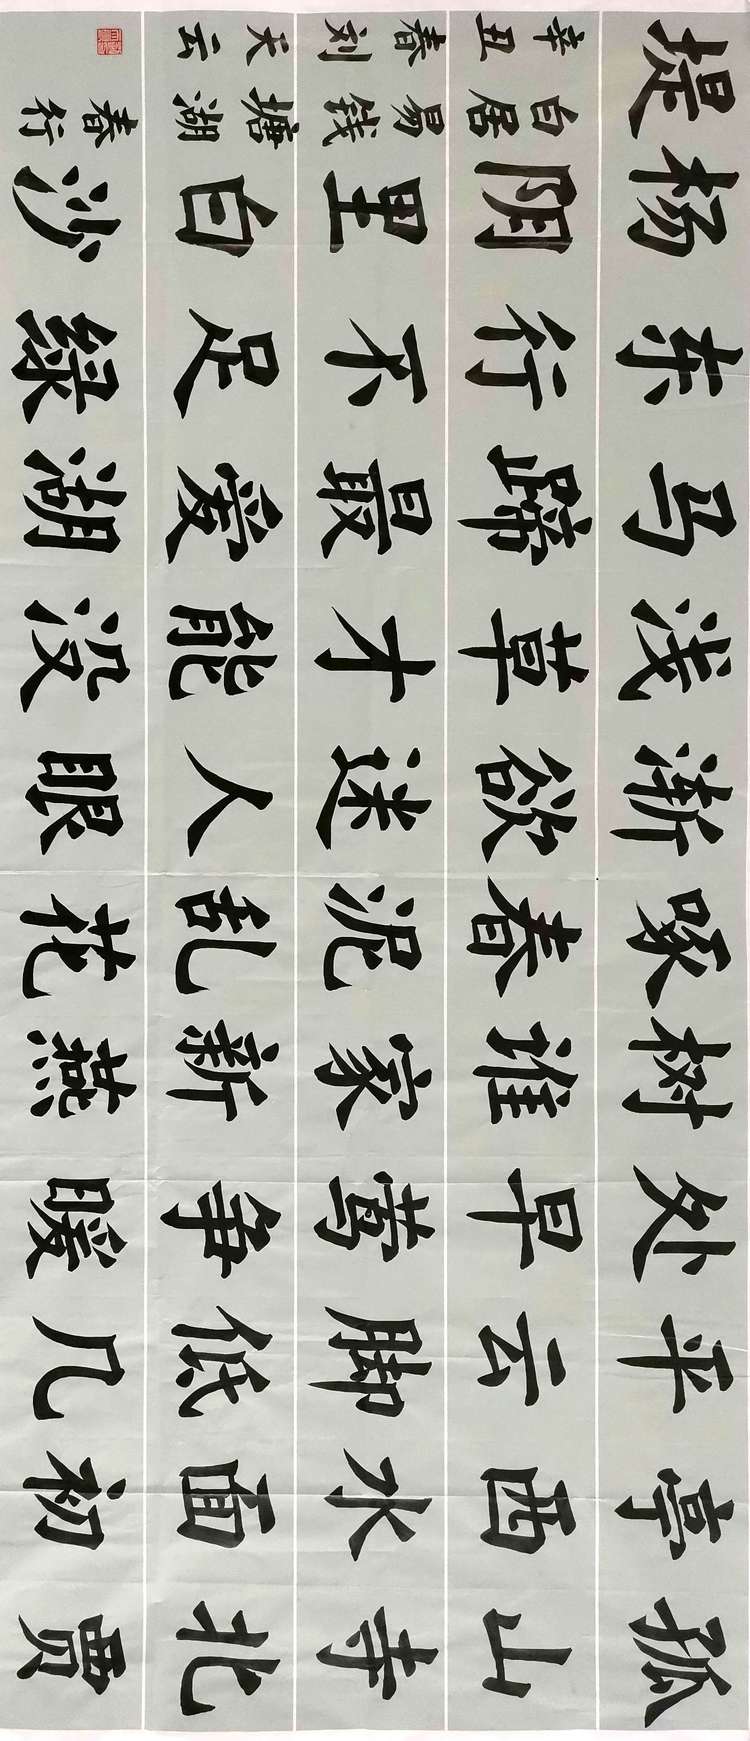 孤山寺北贾
亭西水面初
平云脚低几
处早莺争暖
树谁家新燕
啄春泥乱花
渐欲迷人眼
浅草才能没
马蹄最爱湖
东行不足绿
杨阴里白沙
堤
白居易钱塘湖春行
辛丑春刘天云